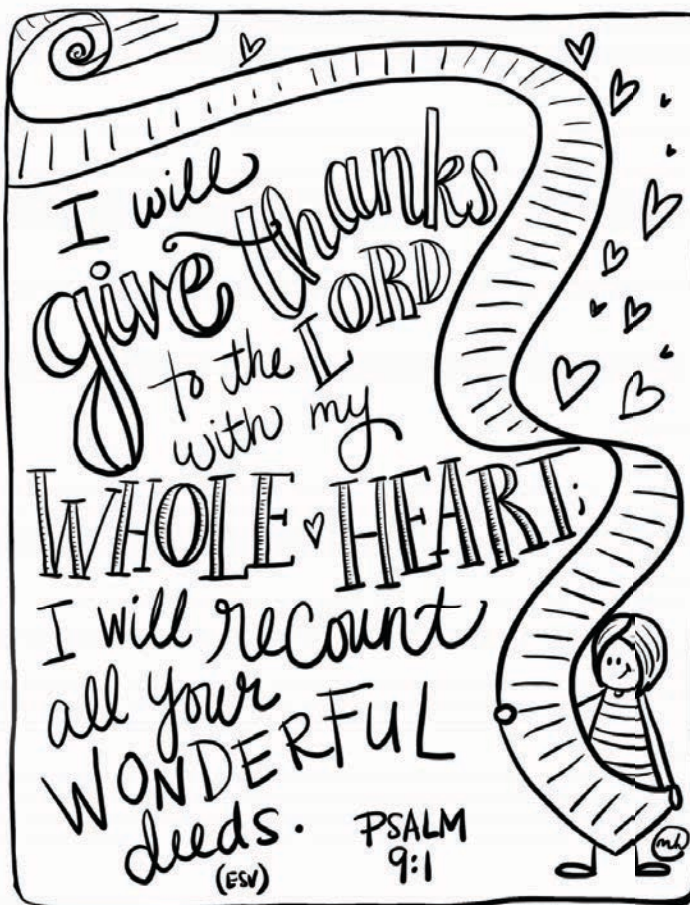 I will
give thanks
to the LORD
with my
WHOLE HEART;
I will recount
all your
WONDERFUL
deeds.
(ESV)
PSALM
9:1
mh